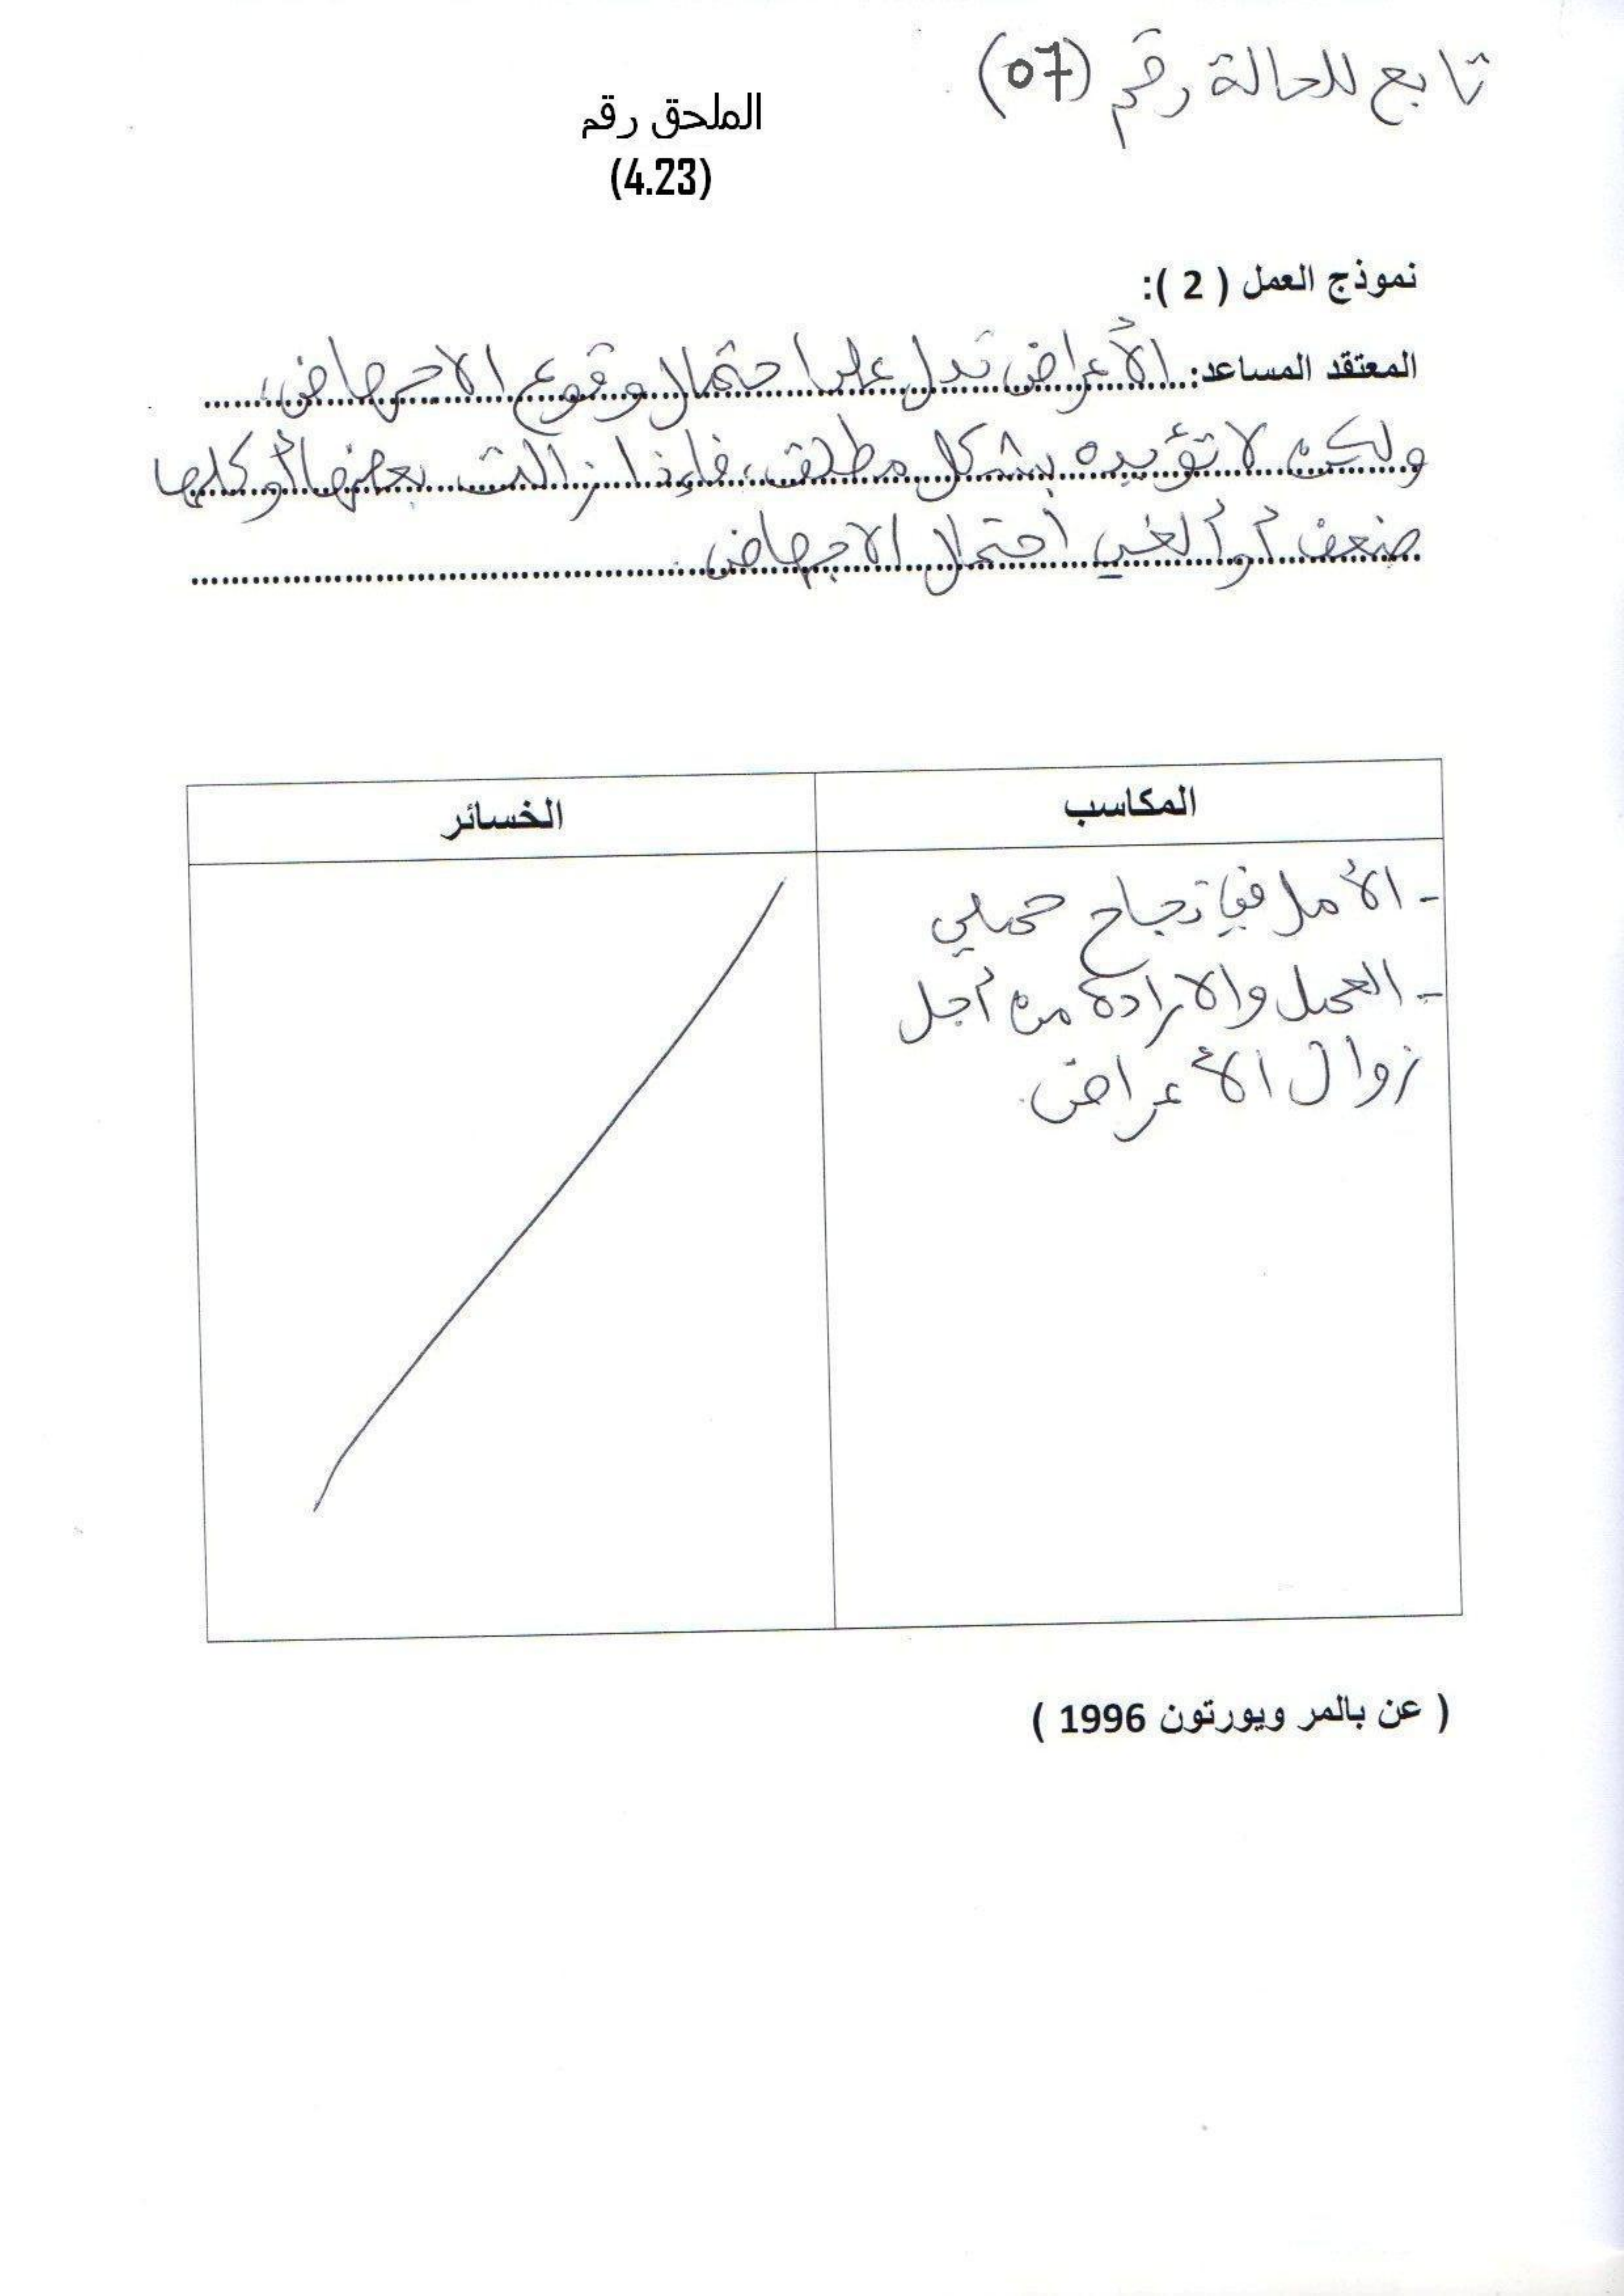 تابع للحالة رقم (07)
الملحق رقم
(4.23)
نموذج العمل ( 2 ):
المعتقد المساعد: الأعراض تدل على احتمال وقوع الاجهاض،
ولكن لا تؤيده بشكل مطلق، فإذا زالت بعضها أو كلها
ضعف أو ألغي احتمال الاجهاض.
المكاسب
الخسائر
- الأمل في نجاح حملي
- العمل والارادة من أجل
زوال الأعراض.
( عن بالمر ويورتون 1996 )